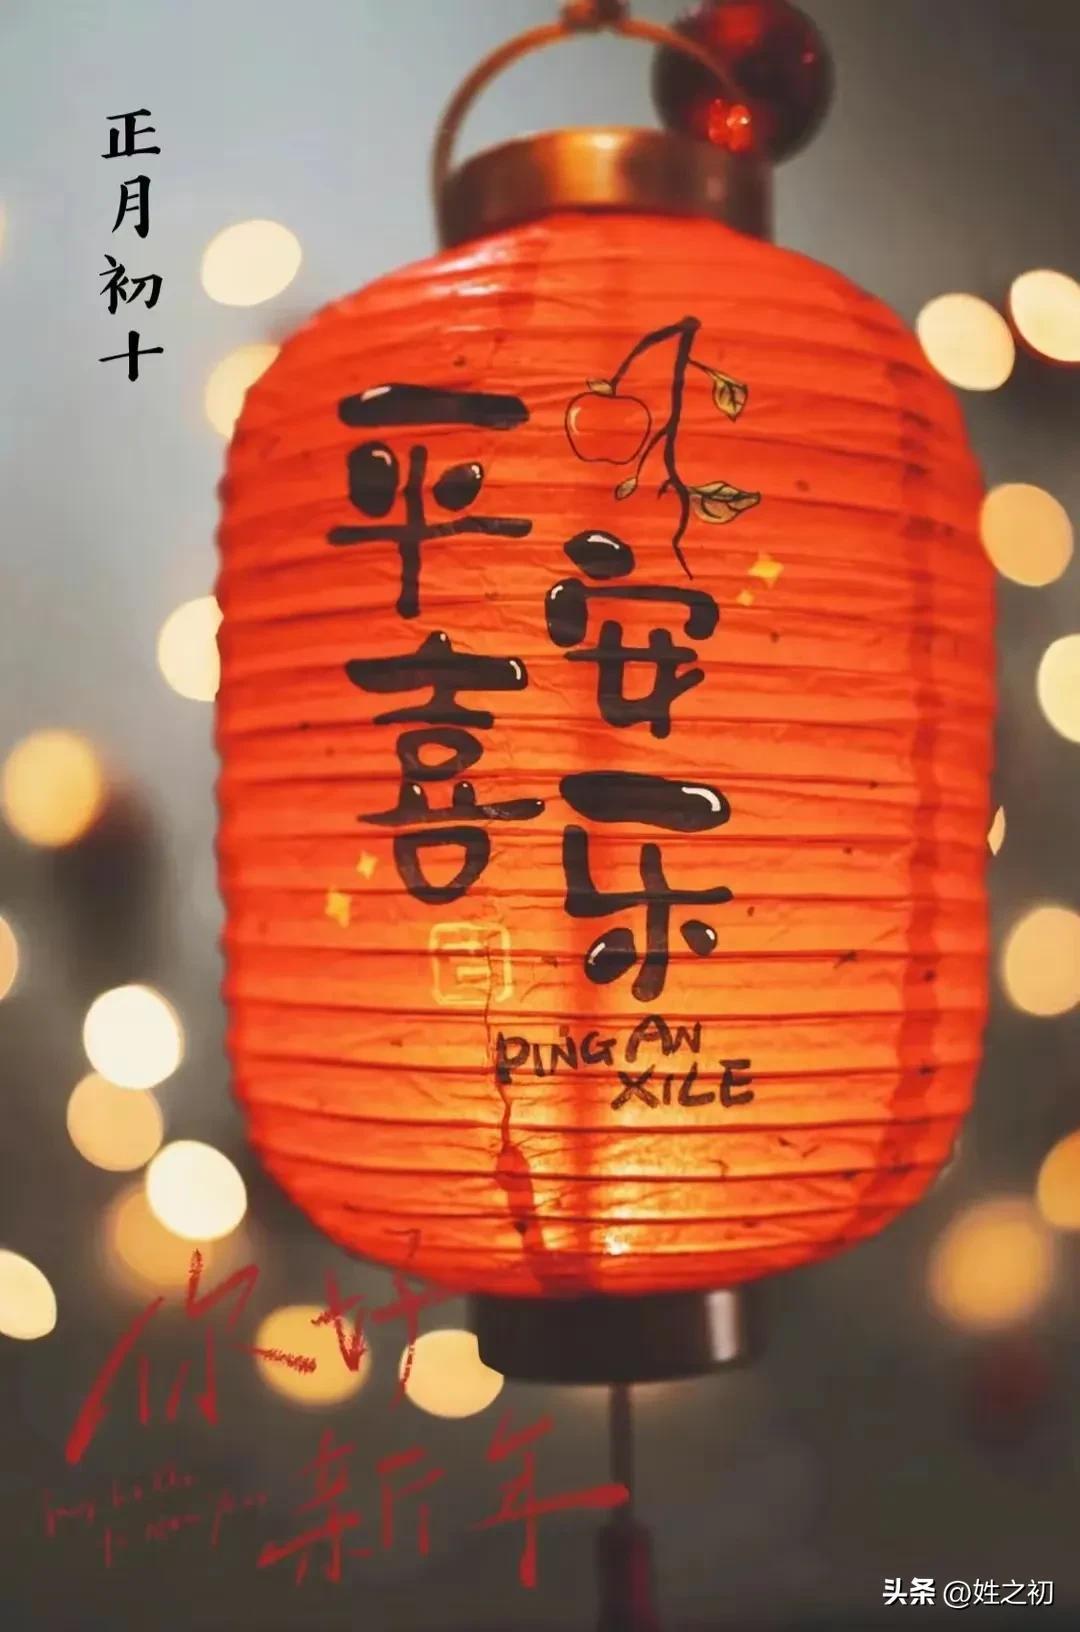 正月初十
平安
喜乐
PING AN
XILE
你好
新年
头条 @姓之初